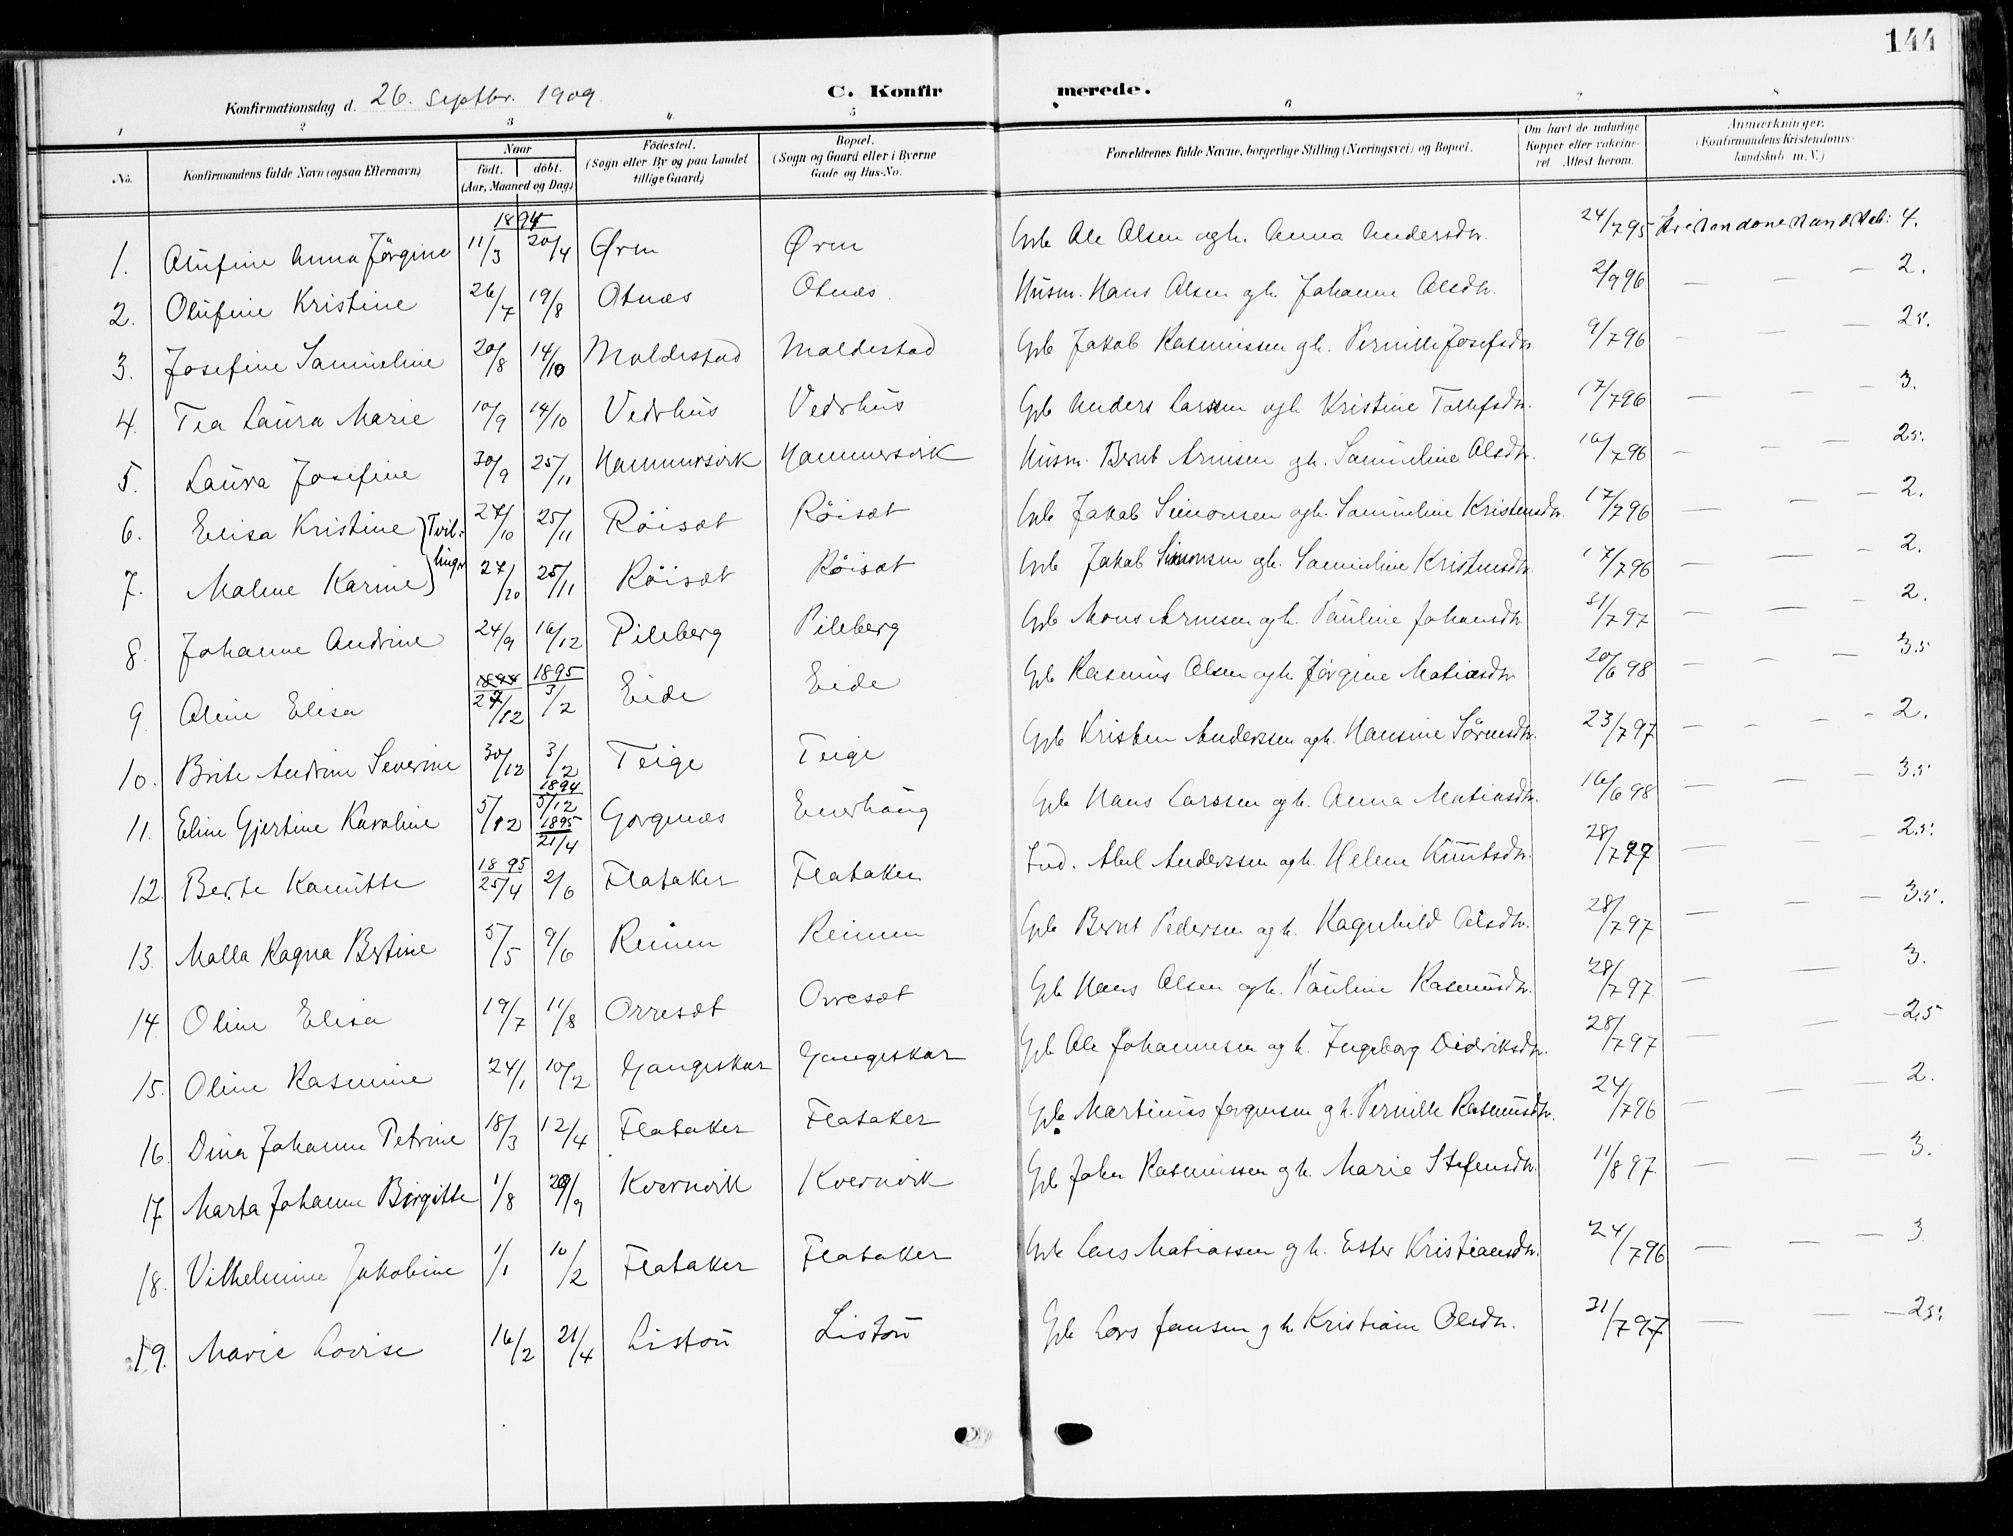 144
Konfirmationsdag d. 26. Septbr. 1909. C. Konfirmerede.
1 2 3 4 5 6 7 8
No. Konfirmandens fulde Navn (ogsaa Efternavn) Naar födt. döbt. (Aar, Maaned og Dag) Födested. (Sogn eller By og paa Landet tillige Gaard) Bopæl. (Sogn og Gaard eller i Byerne Gade og Hus-No. Forældrenes fulde Navne, borgerlige Stilling (Næringsvei) og Bopæl. Om havt de naturlige Kopper eller vaksineret. Attest herom. Anmærkninger. (Konfirmandens Kristendomskundskab m. V.)
1894
1. Olufine Anna Jørgine 11/3 20/4 Ørm Ørm Grb Ole Olsen og h. Anna Andersdtr. 24/7 95 Kristendomskundskab: 4.
2. Olufine Kristine 26/7 19/8 Otnæs Otnæs Husm. Hans Olsen og h. Johanne Olsdtr. 2/9 96 — — — 2.
3. Josefine Samueline 20/8 14/10 Moldestad Moldestad Grb Jakob Rasmussen og h. Pernille Josefsdtr. 9/7 96 — — — 2.5.
4. Tea Laura Marie 10/9 14/10 Vedrhus Vedrhus Grb Anders Larssen og h. Kristine Tollefsdtr. 17/7 96 — — — 3.
5. Laura Josefine 30/9 25/11 Hammersvik Hammersvik Husm. Bernt Arnesen og h. Samueline Olsdtr. 16/7 96 — — — 2.5.
6. Elisa Kristine } Tvil- 27/10 25/11 Röisæt Röisæt Grb Jakob Simonsen og h. Samueline Kristensdtr. 17/7 96 — — 2.
7. Malene Karine } linger 27/10 25/11 Röisæt Röisæt Grb Jakob Simonsen og h. Samueline Kristensdtr. 17/7 96 — — — 2.
8. Johanne Andrine 24/9 16/12 Pileberg Pileberg Grb Mons Arnesen og h. Pauline Johansdtr 31/7 97 — — — 2.
1894 1895
9. Oline Elisa 27/12 3/2 Eide Eide Grb Rasmus Olsen og h. Jørgine Matiasdtr 20/6 98 — — — 3.5
10. Brite Andrine Severine 30/12 3/2 Teige Teige Grb Kristen Anderssen og h. Hansine Sørensdtr. 23/7 97 — — — 2.
1894
11. Eline Gjertine Karoline 5/12 5/12 1895 21/4 Gorgenæs Enerhaug Grb Hans Larssen og h. Anna Matiasdtr. 16/6 98 — — — 3.5
1895
12. Berte Kamitte 25/4 2/6 Flataker Flataker Ind. Abel Anderssen og h. Helene Knutsdtr. 28/7 97 — — 2.5.
13. Malla Ragna Bertine 5/5 9/6 Reimen Reimen Grb Bernt Pedersen og h. Ragnhild Olsdtr. 28/7 97 — — — 3.5.
14. Oline Elisa 19/7 11/8 Orresæt Orresæt Grb Hans Olsen og h. Pauline Rasmusdtr. 28/7 97. — — 3.
15. Oline Rasmine 24/1 10/2 Gangeskar Gangeskar Grb Ole Johannesen og h. Ingeborg Didriksdtr. 28/7 97 — — 2.5
16. Dina Johanne Petrine 18/3 12/4 Flataker Flataker Grb Martinus Jørgensen og h. Pernille Rasmusdtr. 24/7 96 — — 2.
17. Marta Johanne Birgitte 1/8 29/9 Kvernvik Kvernvik Grb John Rasmussen og h. Marie Stefensdtr. 11/8 97 — — — 3.
18. Vilhelmine Jakobine 1/1 10/2 Flataker Flataker Grb Lars Matiassen og h. Ester Kristiansdtr. 24/7 96 — — — 3.
19. Marie Lovise 16/2 21/4 Listöü Listöü Grb Lars Jansen og h Kristiane Olsdtr. 31/7 97 — — 2.5.